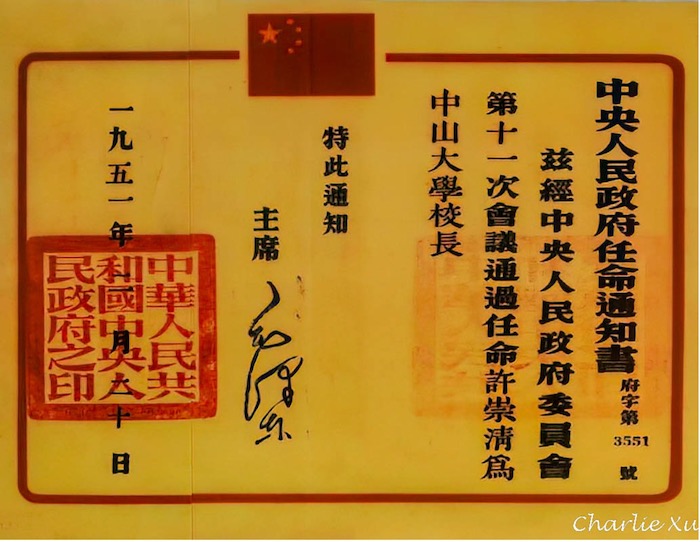 中央人民政府任命通知書
府字第 3551 號
茲經中央人民政府委員會
第十一次會議通過任命許崇清爲
中山大學校長
特此通知
主席 毛澤东
一九五一年二月十日
中華人民共
和國中央人
民政府之印
Charlie Xu